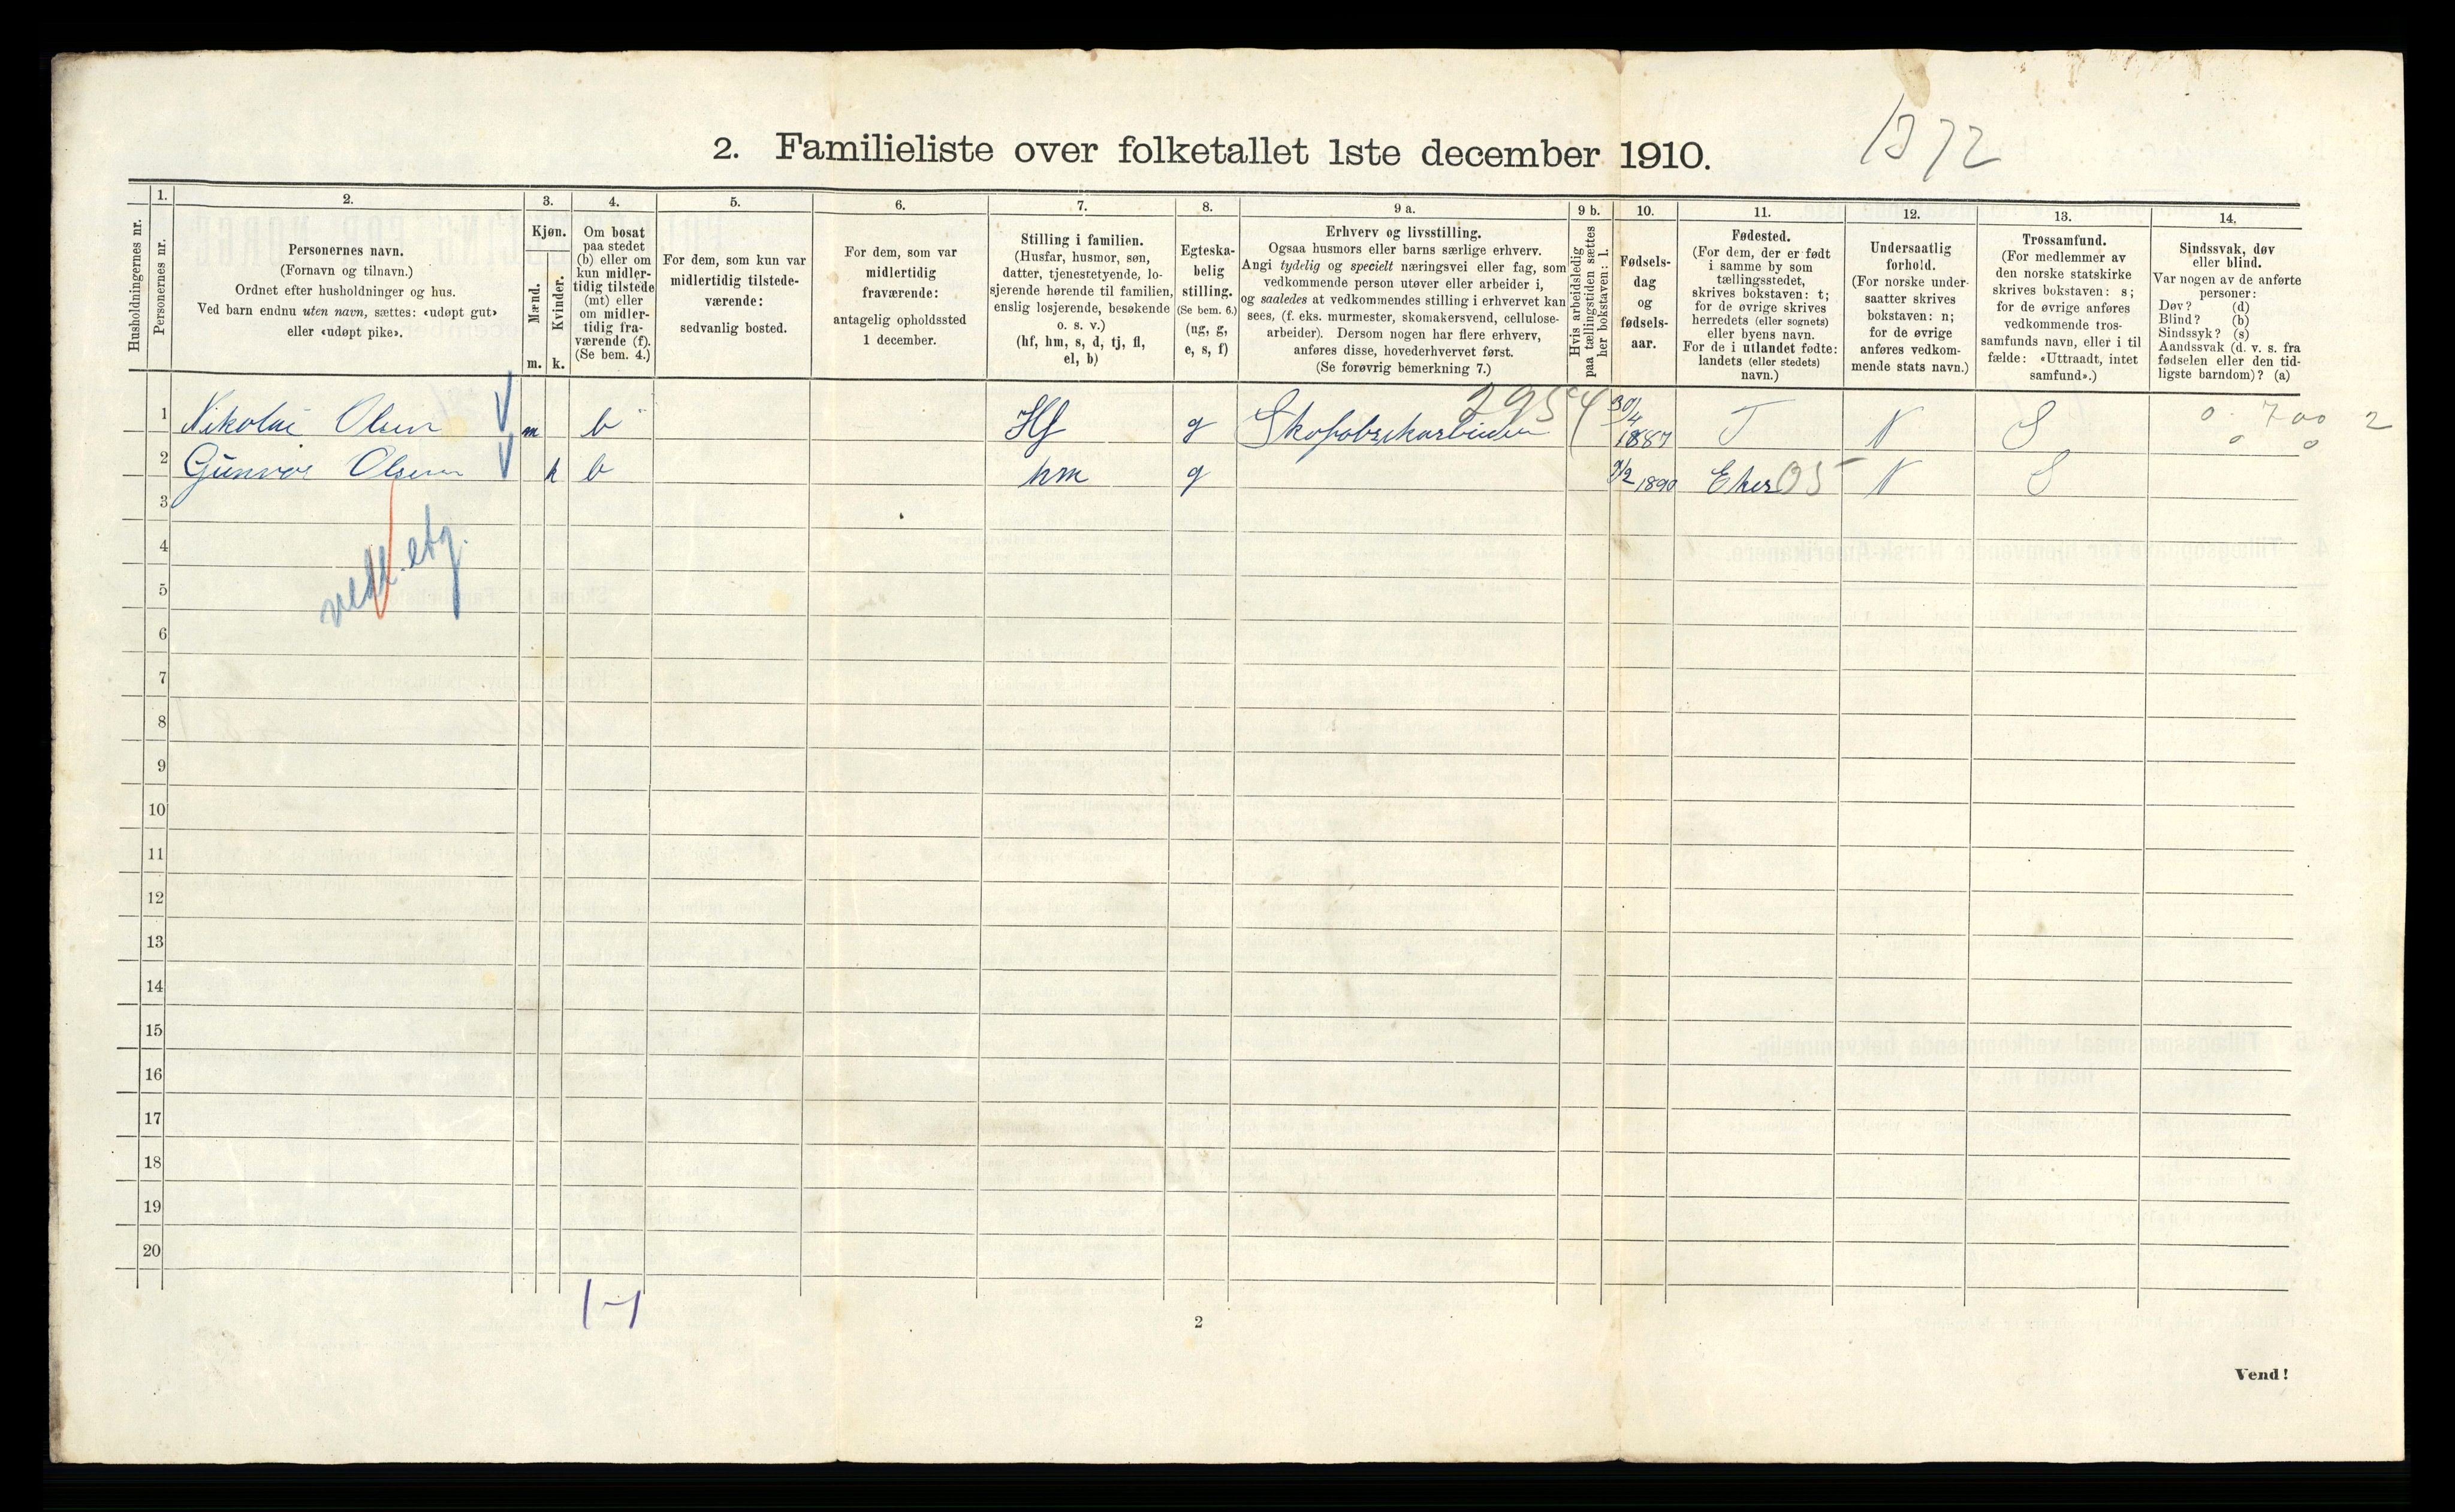 2. Familieliste over folketallet 1ste december 1910.
1372
Husholdningernes nr.
1.
Personernes nr.
2.
Personernes navn.
(Fornavn og tilnavn.)
Ordnet efter husholdninger og hus.
Ved barn endnu uten navn, sættes: «udøpt gut»
eller «udøpt pike».
3.
Kjøn.
Mænd.
Kvinder.
m. k.
4.
Om bosat
paa stedet
(b) eller om
kun midler-
tidig tilstede
(mt) eller
om midler-
tidig fra-
værende (f).
(Se bem. 4.)
5.
For dem, som kun var
midlertidig tilstede-
værende:
sedvanlig bosted.
6.
For dem, som var
midlertidig
fraværende:
antagelig opholdssted
1 december.
7.
Stilling i familien.
(Husfar, husmor, søn,
datter, tjenestetyende, lo-
sjerende hørende til familien,
enslig losjerende, besøkende
o. s. v.)
(hf, hm, s, d, tj, fl,
el, b)
8.
Egteska-
belig
stilling.
(Se bem. 6.)
(ug, g,
e, s, f)
9 a.
Erhverv og livsstilling.
Ogsaa husmors eller barns særlige erhverv.
Angi tydelig og specielt næringsvei eller fag, som
vedkommende person utøver eller arbeider i,
og saaledes at vedkommendes stilling i erhvervet kan
sees, (f. eks. murmester, skomakersvend, cellulose-
arbeider). Dersom nogen har flere erhverv,
anføres disse, hovederhvervet først.
(Se forøvrig bemerkning 7.)
9 b.
Hvis arbeidsledig
paa tællingstiden sættes
her bokstaven: l.
10.
Fødsels-
dag
og
fødsels-
aar.
11.
Fødested.
(For dem, der er født
i samme by som
tællingsstedet,
skrives bokstaven: t;
for de øvrige skrives
herredets (eller sognets)
eller byens navn.
For de i utlandet fødte:
landets (eller stedets)
navn.)
12.
Undersaatlig
forhold.
(For norske under-
saatter skrives
bokstaven: n;
for de øvrige
anføres vedkom-
mende stats navn.)
13.
Trossamfund.
(For medlemmer av
den norske statskirke
skrives bokstaven: s;
for de øvrige anføres
vedkommende tros-
samfunds navn, eller i til
fælde: «Uttraadt, intet
samfund».)
14.
Sindssvak, døv
eller blind.
Var nogen av de anførte
personer:
Døv? (d)
Blind? (b)
Sindssyk? (s)
Aandssvak (d. v. s. fra
fødselen eller den tid-
ligste barndom)? (a)
1 Nikolai Olsen m b Hf g Skofabrikarbeider 2954 30/4 1887 T N S 0 700 2
0 0
2 Gunvor Olsen k b hm g 9/2 1890 Eker 05 N S
3
4
vedk. etg.
5
6
7
8
9
10
11
12
13
14
15
16
17
18
19
20
1-1
2
Vend!